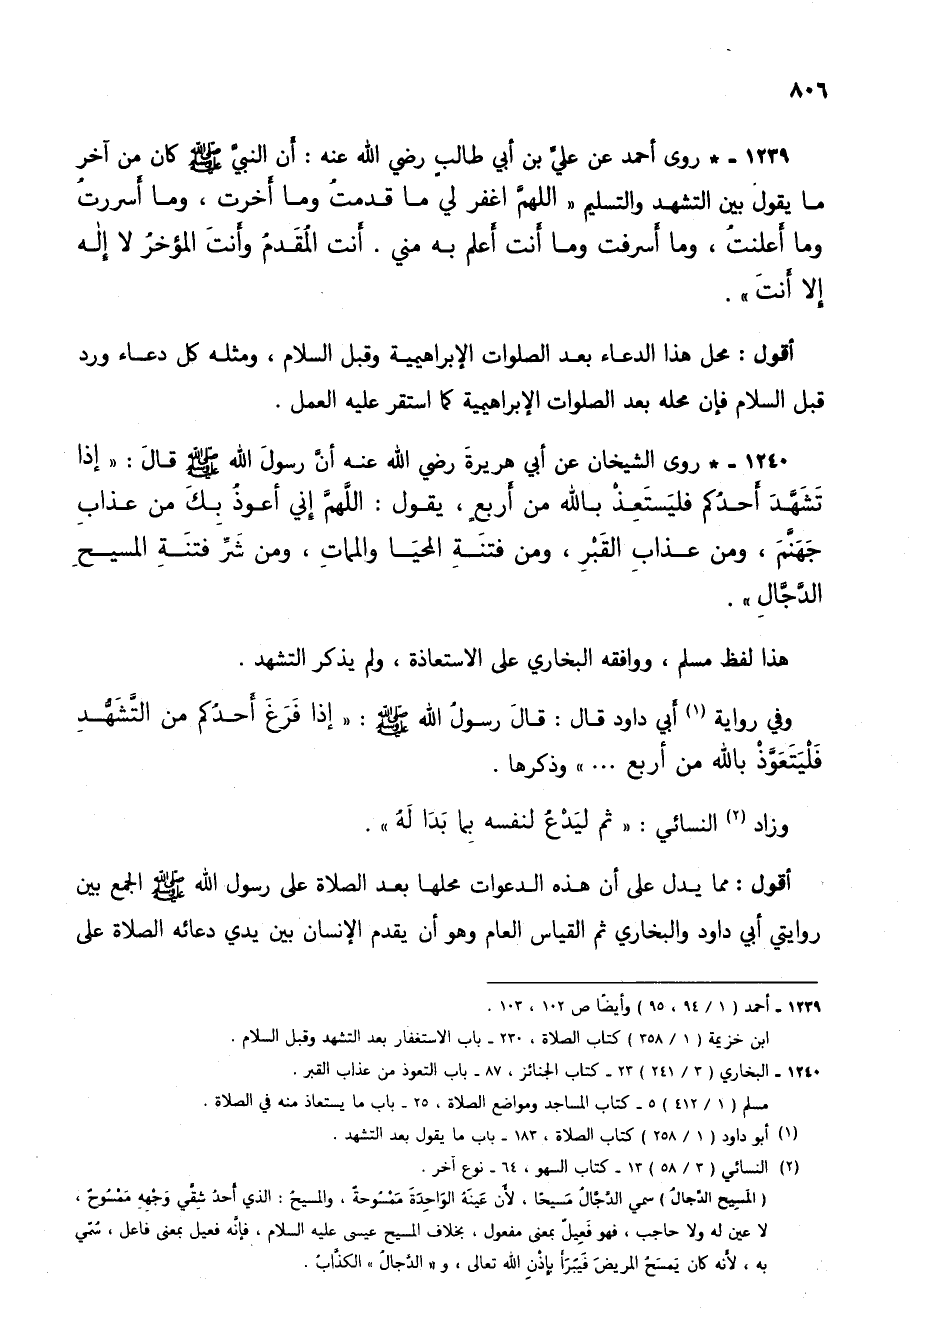 ٨٠٦
١٢٣٩ - * روى أحمد عن عليِّ بن أبي طالبٍ رضي الله عنه : أَن النبيَّ ﷺ كان من آخر
ما يقولَ بين التشهد والتسليم « اللهمَّ اغفر لي ما قدمتُ وما أَخرت ، وما أَسررتُ
وما أَعلنتُ ، وما أَسرفت وما أَنت أَعلم به مني . أَنت المُقَدمُ وأَنتَ المؤخرُ لا إِلٰه
إِلا أَنتَ » .
أقول : محل هذا الدعاء بعد الصلوات الإبراهيمية وقبل السلام ، ومثله كل دعاء ورد
قبل السلام فإن محله بعد الصلوات الإبراهيمية كما استقر عليه العمل .
١٢٤٠ - * روى الشيخان عن أبي هريرةَ رضي الله عنه أنَّ رسولَ الله ﷺ قالَ : « إذا
تَشَهَّدَ أَحدُكم فليَستَعِذْ بالله من أَربعٍ ، يقول : اللَّهمَّ إِني أعوذُ بكَ من عذابِ
جَهَنَّمَ ، ومن عذابِ القَبْرِ ، ومن فتنَةِ المحيَا والمماتِ ، ومن شَرِّ فتنَةِ المسيحِ
الدَّجَّالِ » .
هذا لفظ مسلم ، ووافقه البخاري على الاستعاذة ، ولم يذكر التشهد .
وفي رواية (١) أَبي داود قال : قالَ رسولُ الله ﷺ : « إذا فَرَغَ أَحدُكم من التَّشَهُّدِ
فَلْيَتَعَوَّذْ بالله من أَربع ... » وذكرها .
وزاد (٢) النسائي : « ثم ليَدْعُ لنفسه بِما بَدَا لَهُ » .
أقول : مما يدل على أن هذه الدعوات محلها بعد الصلاة على رسول الله ﷺ الجمع بين
روايتي أبي داود والبخاري ثم القياس العام وهو أن يقدم الإنسان بين يدي دعائه الصلاة على
١٢٣٩ - أحمد ( ١ / ٩٤ ، ٩٥ ) وأيضًا ص ١٠٢ ، ١٠٣ .
ابن خزيمة ( ١ / ٣٥٨ ) كتاب الصلاة ، ٢٣٠ - باب الاستغفار بعد التشهد وقبل السلام .
١٢٤٠ - البخاري ( ٣ / ٢٤١ ) ٢٣ - كتاب الجنائز ، ٨٧ - باب التعوذ من عذاب القبر .
مسلم ( ١ / ٤١٢ ) ٥ - كتاب المساجد ومواضع الصلاة ، ٢٥ - باب ما يستعاذ منه في الصلاة .
(١) أبو داود ( ١ / ٢٥٨ ) كتاب الصلاة ، ١٨٣ - باب ما يقول بعد التشهد .
(٢) النسائي ( ٣ / ٥٨ ) ١٣ - كتاب السهو ، ٦٤ - نوع آخر .
( المسيح الدجالُ ) سمي الدجَّالُ مَسيحًا ، لأن عَينَهُ الوَاحِدَةَ مَمْسُوحةٌ ، والمسيحُ : الذي أحدُ شِقَّي وَجْهِهِ مَمْسُوحٌ ،
لا عين له ولا حاجب ، فهو فَعِيلٌ بمعنى مفعول ، بخلاف المسيح عيسى عليه السلام ، فإنَّه فعيل بمعنى فاعل ، سُمِّي
به ، لأنه كان يَمسَحُ المريضَ فَيَبْرَأَ بإذْنِ الله تعالى ، و « الدَّجالُ » الكذَّابُ .